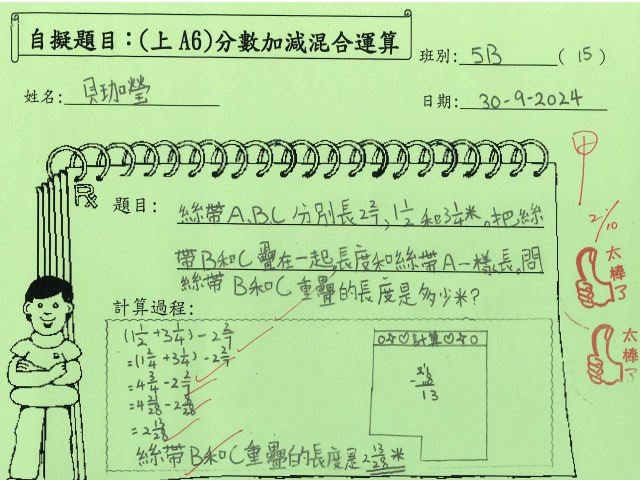 自擬題目：(上 A6)分數加減混合運算
班別: 5B (15)
姓名: 貝珈瑩
日期: 30-9-2024
甲
2/10
題目: 絲帶A、B、C 分別長2 2/7、1 1/2 和3 1/4米。把絲
帶B和C疊在一起,長度和絲帶A一樣長。問
絲帶B和C重疊的長度是多少米?
太棒了
太棒了
計算過程:
(1 1/2 + 3 1/4) - 2 2/7
= (1 2/4 + 3 1/4) - 2 2/7
= 4 3/4 - 2 2/7
= 4 21/28 - 2 8/28
= 2 13/28
絲帶B和C重疊的長度是2 13/28 米
計算
13